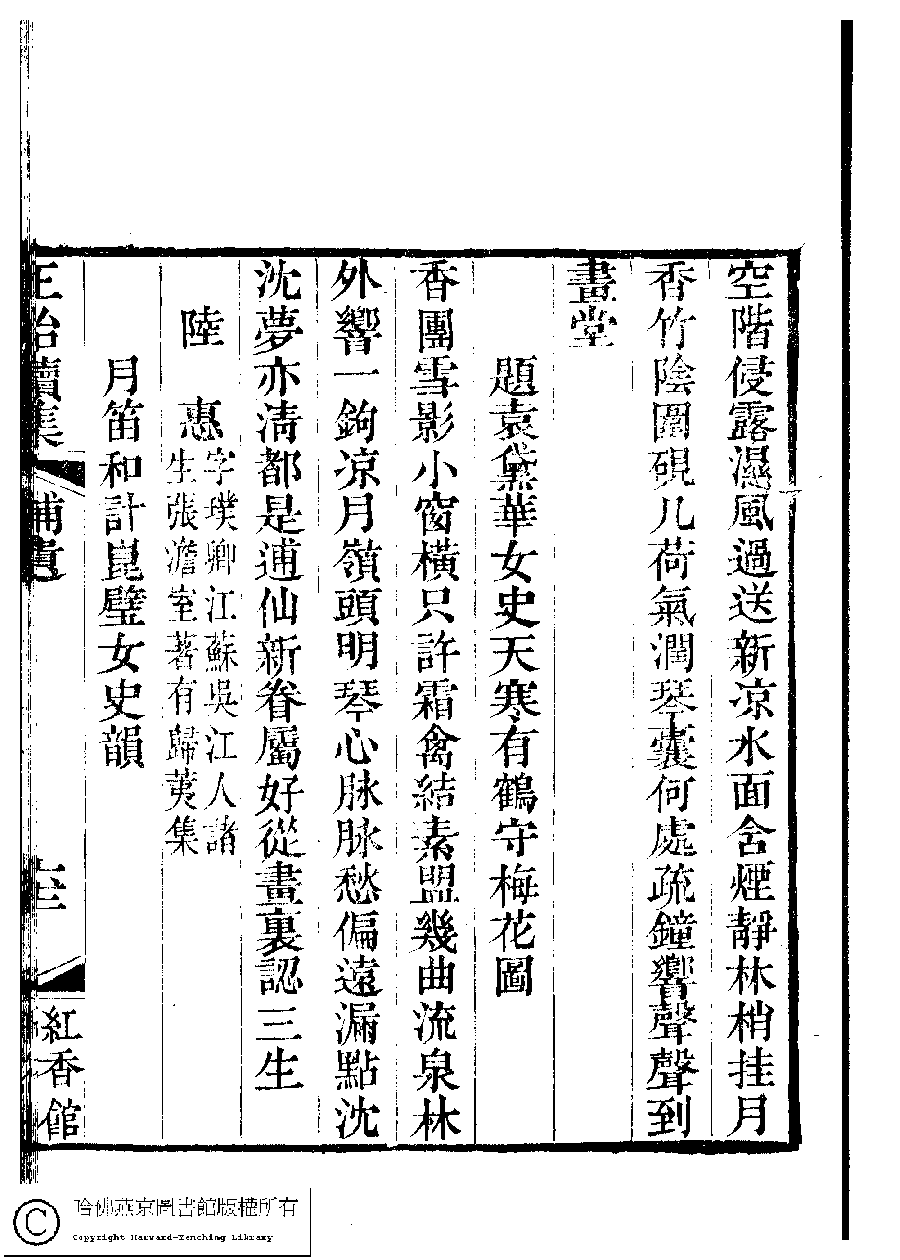 空階侵露濕風過送新凉水面含煙靜林梢挂月
香竹陰圍硯几荷氣潤琴囊何處疏鐘響聲聲到
畫堂
題袁黛華女史天寒有鶴守梅花圖
香團雪影小窗橫只許霜禽結素盟幾曲流泉林
外響一鉤凉月嶺頭明琴心脉脉愁偏遠漏點沈
沈夢亦清都是逋仙新眷屬好從畫裏認三生
陸惠
字璞卿江蘇吳江人諸
生張澹室著有歸荑集
月笛和計崑璧女史韻
續集 補遺 紅香館
哈佛燕京圖書館版權所有
Copyright Harvard-Yenching Library